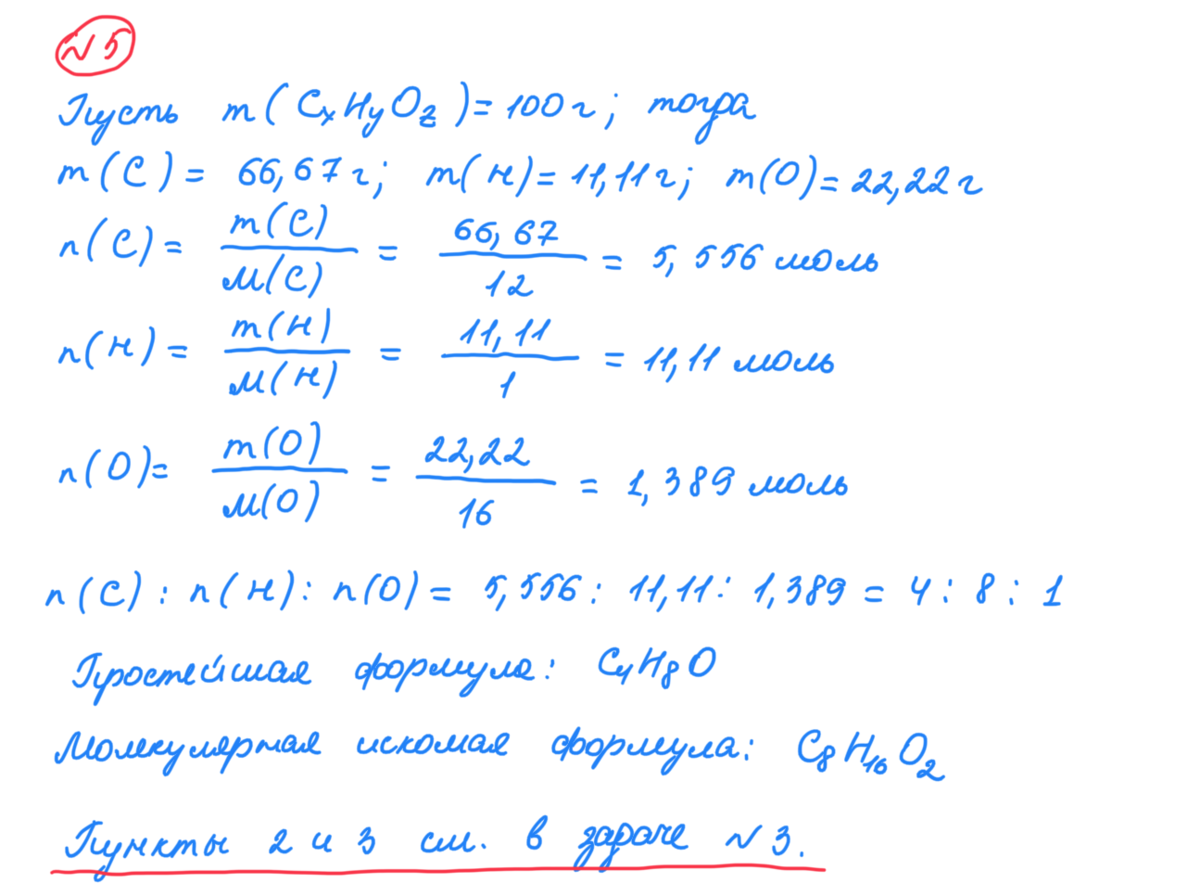 № 5
Пусть m(CxHyOz) = 100 г; тогда
m(C) = 66,67 г; m(H) = 11,11 г; m(O) = 22,22 г
n(C) = m(C)/M(C) = 66,67/12 = 5,556 моль
n(H) = m(H)/M(H) = 11,11/1 = 11,11 моль
n(O) = m(O)/M(O) = 22,22/16 = 1,389 моль
n(C) : n(H) : n(O) = 5,556 : 11,11 : 1,389 = 4 : 8 : 1
Простейшая формула: C₄H₈O
Молекулярная искомая формула: C₈H₁₆O₂
Пункты 2 и 3 см. в задаче № 3.